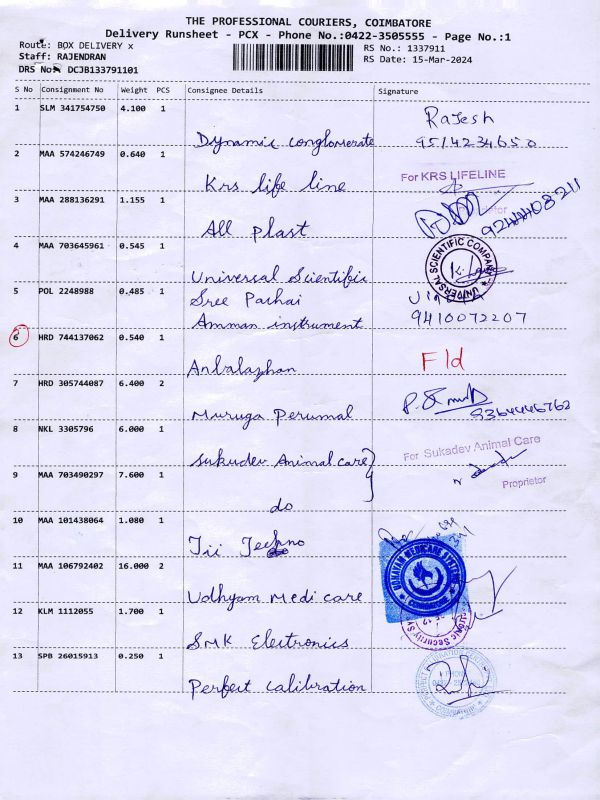 THE PROFESSIONAL COURIERS, COIMBATORE
Delivery Runsheet - PCX - Phone No.:0422-3505555 - Page No.:1
Route: BOX DELIVERY x RS No.: 1337911
Staff: RAJENDRAN RS Date: 15-Mar-2024
DRS No: DCJB133791101
S No Consignment No Weight PCS Consignee Details Signature
1 SLM 341754750 4.100 1 Rajesh
Dynamic conglomerate 9514234650
2 MAA 574246749 0.640 1 For KRS LIFELINE
Krs life line
3 MAA 288136291 1.155 1
All plast
4 MAA 703645961 0.545 1 UNIVERSAL SCIENTIFIC COMPANY
Universal Scientific
5 POL 2248988 0.485 1 Sree Pachai
Amman instrument 9410072207
6 HRD 744137062 0.540 1 Fld
Anbalazhan
7 HRD 305744087 6.400 2
Muruga Perumal 9364446762
8 NKL 3305796 6.000 1 For Sukadev Animal Care
Sukudev Animal care
9 MAA 703490297 7.600 1 Proprietor
do
10 MAA 101438064 1.080 1
Jii Techno
11 MAA 106792402 16.000 2 UDHAYAM MEDICARE SYSTEMS
Udhyam Medi care
12 KLM 1112055 1.700 1
SMK Electronics
13 SPB 26015913 0.250 1
Perfect calibration